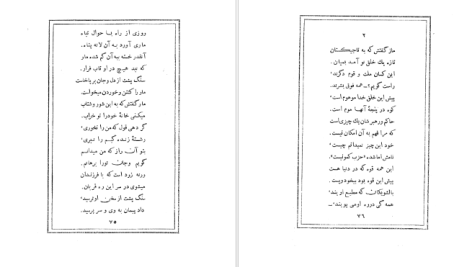 روزی از راه با حوال تباه
ماری آورد به آن لانه پناه.
آنقدر خسته به آن گم شده مار
که نبد هیچ در او تاب قرار.
سنگ پشت از دل وجان برپاخاست
مار را کشتن وخوردن میخواست.
مار گفتش که به این شور وشتاب
میکنی خانهٔ خودرا تو خراب.
گر دهی قول که من را نخوری
رشتهٔ زنده گیم را نبری
بتو آن راز که من میدانم
گویم وجان تورا برهانم.
ورنه زود است که با فرزندان
میشوی در سر این ره قربان.
سنگ پشت از سخن او ترسید
داد پیمان به وی و سر پرسید.
٧٥
٢
مار گفتش که به تاجیکستان
تازه یک خلق نو آمد بمیان.
این کسان ملت و قوم دگرند
راست گویم همه فوق بشرند.
پیش این خلق خدا موهوم است
کوه در پنجهٔ آنها موم است.
حاکم ورهبر شان یک چیزی است
که مرا فهم به آن امکان نیست.
خود این چیز نمیدانم چیست
نامش اما شده «حزب کمونیست».
این همه قوه که در دنیا هست
پیش این قوه بود بیخود وپست.
بالشویکان که مطیع اویند
همه گی در ره اومی پویند
٧٦